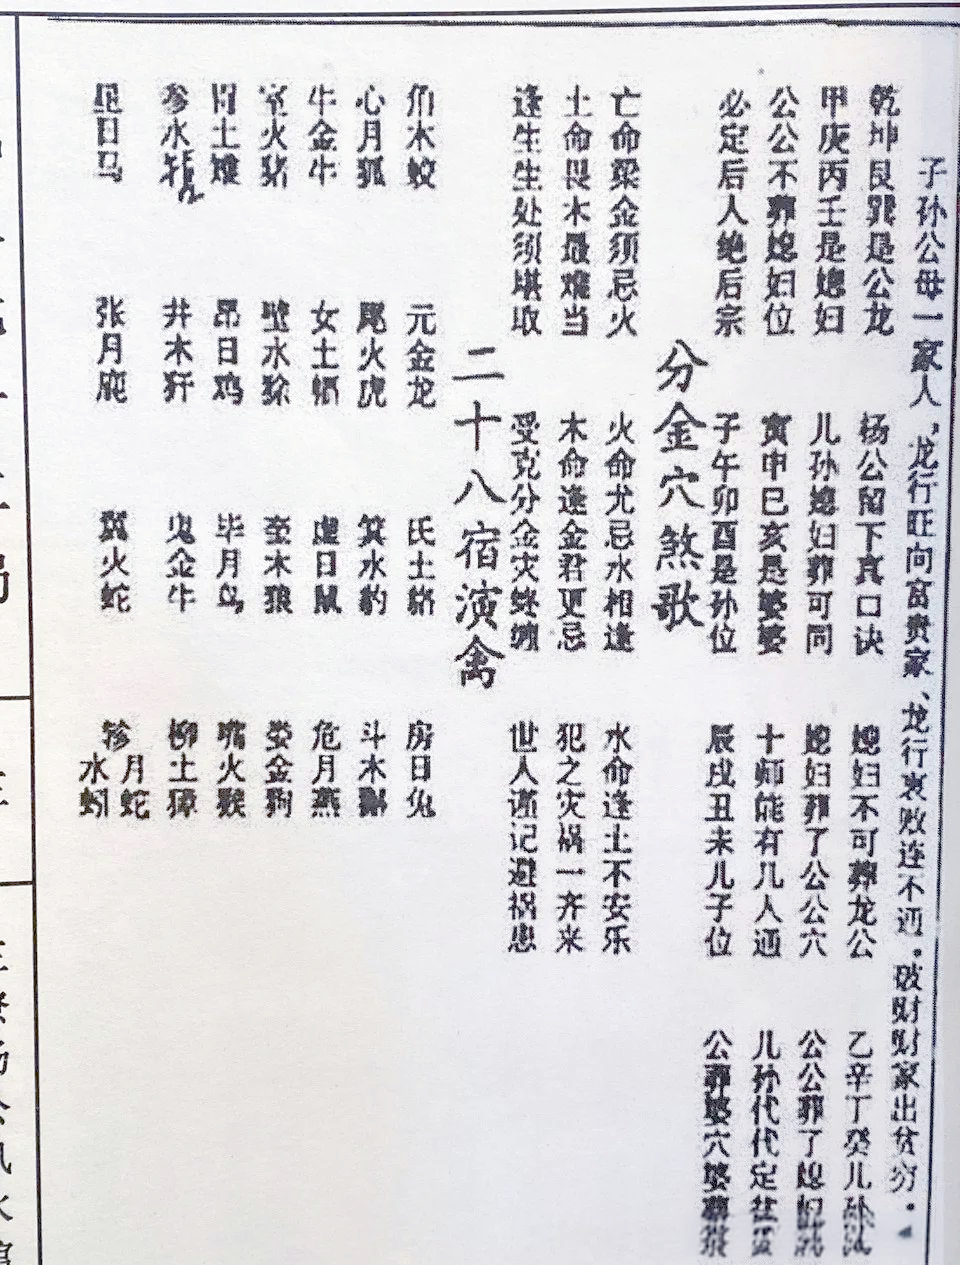 子孙公母一家人，龙行旺向富贵家、龙行衰败连不通。破财财家出贫穷。
乾坤艮巽是公龙 杨公留下真口诀 媳妇不可葬龙公 乙辛丁癸儿孙
甲庚丙壬是媳妇 儿孙媳妇葬可同 媳妇葬了公公穴 公公葬了媳妇
公公不葬媳妇位 寅申巳亥是婆婆 十师能有几人通 儿孙代代定
必定后人绝后宗 子午卯酉是孙位 辰戌丑未儿子位 公葬婆穴婆
分金穴煞歌
亡命梁金须忌火 火命尤忌水相逢 水命逢土不安乐
土命畏木最难当 木命逢金君更忌 犯之灾祸一齐来
逢生生处须堪取 受克分金灾终缠 世人谨记避祸患
二十八宿演禽
角木蛟 元金龙 氏土貉 房日兔
心月狐 尾火虎 箕水豹 斗木獬
牛金牛 女土蝠 虚日鼠 危月燕
室火猪 壁水 奎木狼 娄金狗
胃土雉 昴日鸡 毕月乌 嘴火猴
参水 井木犴 鬼金牛 柳土獐
星日马 张月鹿 翼火蛇 轸月蛇
水蚓